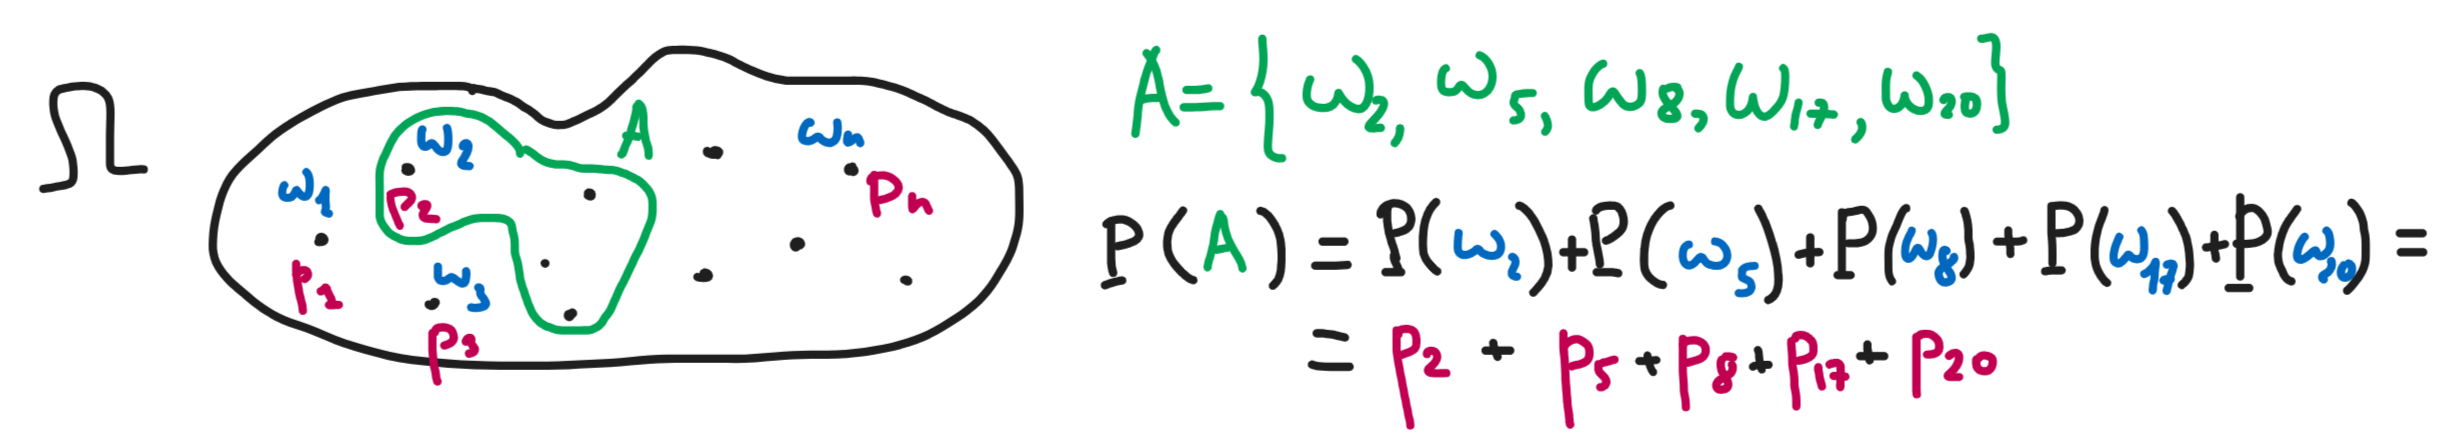 Ω
A
ω₂
ωₙ
ω₁
p₂
pₙ
p₁
ω₃
p₃
A = { ω₂, ω₅, ω₈, ω₁₇, ω₂₀ }
P(A) = P(ω₂) + P(ω₅) + P(ω₈) + P(ω₁₇) + P(ω₂₀) =
= p₂ + p₅ + p₈ + p₁₇ + p₂₀